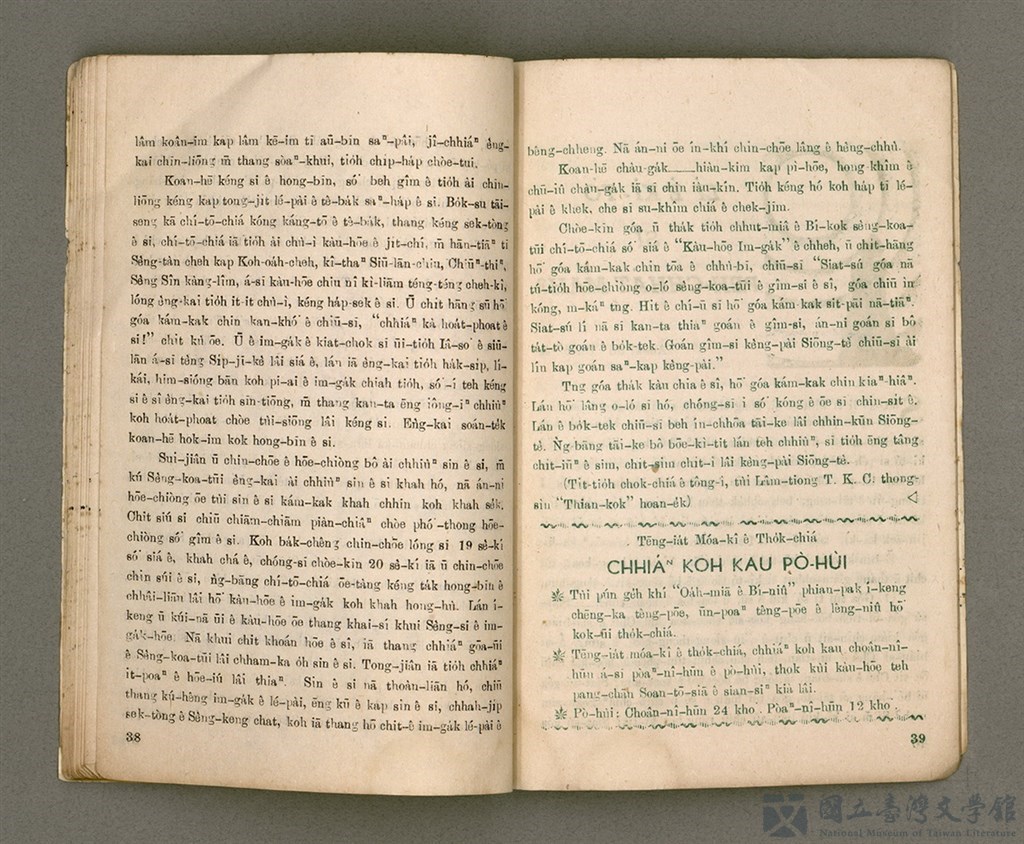 lâm koân-im kap lâm kē-im tī aū-bīn saⁿ-pâi, jī-chhiáⁿ èng-
kai chīn-liōng m̄ thang sòaⁿ-khui, tio̍h chi̍p-ha̍p chòe-tui.
Koan-hē kéng si ê hong-bīn, só͘ beh gîm ê tio̍h ài chīn-
liōng kéng kap tong-ji̍t lé-pài ê tê-ba̍k saⁿ-ha̍p ê si. Bo̍k-su tāi-
seng kā chí-tō-chiá kóng káng-tō ê tê-ba̍k, thang kéng sek-tòng
ê si, chí-tō-chiá iā tio̍h ài chù-ì kàu-hōe ê ji̍t-chí, m̄ hān-tiāⁿ tī
Sèng-tàn cheh kap Koh-oa̍h-cheh, kî-thaⁿ Siū-lān-chiu, Chiūⁿ-thiⁿ,
Sèng Sîn kàng-lîm, á-sī kàu-hōe chiu nî kì-liām téng-téng cheh-kî,
lóng èng-kai tio̍h it-it chù-ì, kéng ha̍p-sek ê si. Ū chi̍t hāng sū hō͘
góa kám-kak chin kan-khó͘ ê chiū-sī, “chhiáⁿ kà hoa̍t-phoat ê
si!” chit kù ōe. Ū ê im-ga̍k ê kiat-chok sī ūi-tio̍h Iâ-so͘ ê siū-
lān á-sī tèng Si̍p-jī-kè lâi siá ê, lán iā èng-kai tio̍h ha̍k-si̍p, lí-
kái, him-sióng bān koh pi-ai ê im-ga̍k chiah tio̍h, só͘-í teh kéng
si ê sî èng-kai tio̍h sin-tiōng, m̄ thang kan-ta ēng iông-īⁿ chhiùⁿ
koh hoa̍t-phoat chòe tùi-siōng lâi kéng si. Eng-kai soán-te̍k
koan-hē ho̍k-im kok hong-bīn ê si.
Sui-jiân ū chin-chōe ê hōe-chiòng bô ài chhiùⁿ sin ê si, m̄
kú Sèng-koa-tūi èng-kai ài chhiùⁿ sin ê si khah hó, nā án-ni
hōe-chiòng ōe tùi sin ê si kám-kak khah chhin koh khah se̍k.
Chit siú si chiū chiām-chiām piàn-chiâⁿ chòe phó͘-thong hōe-
chiòng só͘ gîm ê si. Koh ba̍k-chêng chin-chōe lóng sī 19 sè-kí
só͘ siá ê, khah chá ê, chóng-sī chòe-kīn 20 sè-kí iā ū chin-chōe
chin súi ê si, ǹg-bāng chí-tō-chiá ōe-tàng kéng ta̍k hong-bīn ê
chhâi-liāu lâi hō͘ kàu-hōe ê im-ga̍k koh khah hong-hù. Lán í-
keng ū kúi-nā ūi ê kàu-hōe ōe thang khai-sí khui Sèng-si ê im-
ga̍k-hōe. Nā khui chit khoán hōe ê sî, iā thang chhiáⁿ gōa-ūi
ê Sèng-koa-tūi lâi chham-ka o̍h sin ê si. Tong-jiân iā tio̍h chhiáⁿ
it-poaⁿ ê hōe-iú lâi thiaⁿ. Sin ê si nā thoân-liān hó, chiū
thang kú-hêng im-ga̍k ê lé-pài, ēng kū ê kap sin ê si, chhah-ji̍p
sek-tòng ê Sèng-keng chat, koh iā thang hō͘ chi̍t-ê im-ga̍k lé-pài ê
38
bêng-chheng. Nā án-ni ōe ín-khí chin-chōe lâng ê hèng-chhù.
Koan-hē chàu-ga̍k——hiàn-kim kap pì-hōe, hong-khîm ê
chū-iû chàu-ga̍k iā sī chin iàu-kín. Tio̍h kéng hó koh ha̍p tī lé-
pài ê khek, che sī su-khîm chiá ê chek-jīm.
Chòe-kīn góa ū tha̍k tio̍h chhut-miâ ê Bí-kok sèng-koa-
tūi chí-tō-chiá só͘ siá ê “Kàu-hōe Im-ga̍k” ê chheh, ū chi̍t-hāng
hō͘ góa kám-kak chin tōa ê chhù-bī, chiū-sī “Siat-sú góa nā
tú-tio̍h hōe-chiòng o-ló sèng-koa-tūi ê gîm-si ê sî, góa chiū ìn
kóng, m-káⁿ tng. Hit ê chí-ū sī hō͘ góa kám-kak sit-pāi nā-tiāⁿ.
Siat-sú lí nā sī kan-ta thiaⁿ goán ê gîm-si, án-ni goán sī bô
ta̍t-tò goán ê bo̍k-tek. Goán gîm-si kèng-pài Siōng-tè chiū-sī ài
lín kap goán saⁿ-kap kèng-pài.”
Tng góa tha̍k kàu chia ê sî, hō͘ góa kám-kak chin kiaⁿ-hiâⁿ.
Lán hō͘ lâng o-ló sī hó, chóng-sī i só͘ kóng ê ōe sī chin-sit ê.
Lán ê bo̍k-tek chiū-sī beh ín-chhōa tāi-ke lâi chhin-kūn Siōng-
tè. Ǹg-bāng tāi-ke bô bōe-kì-tit lán teh chhiùⁿ, sī tio̍h ēng tâng
chi̍t-iūⁿ ê sim, chi̍t-sim chi̍t-ì lâi kèng-pài Siōng-tè.
(Tit-tio̍h chok-chiá ê tông-ì, tùi Lâm-tiong T. K. C. thong-
sìn “Thian-kok” hoan-e̍k)
Tēng-ia̍t Móa-kî ê Tho̍k-chiá
CHHIÁᴺ KOH KAU PÒ-HÙI
Tùi pún ge̍h khí “Oa̍h-miā ê Bí-niû” phian-pak í-keng
chēng-ka tèng-pōe, ūn-poaⁿ tèng-pōe ê lèng-niû hō͘
kok-ūi tho̍k-chiá.
Tēng-ia̍t móa-kî ê tho̍k-chiá, chhiáⁿ koh kau choân-nî-
hūn á-sī pòaⁿ-nî-hūn ê pò-hùi, thok kùi kàu-hōe teh
pang-chān Soan-tō-siā ê sian-siⁿ kià lâi.
Pò-hùi: Choân-nî-hūn 24 kho͘. Pòaⁿ-nî-hūn 12 kho͘.
39
國立臺灣文學館
National Museum of Taiwan Literature